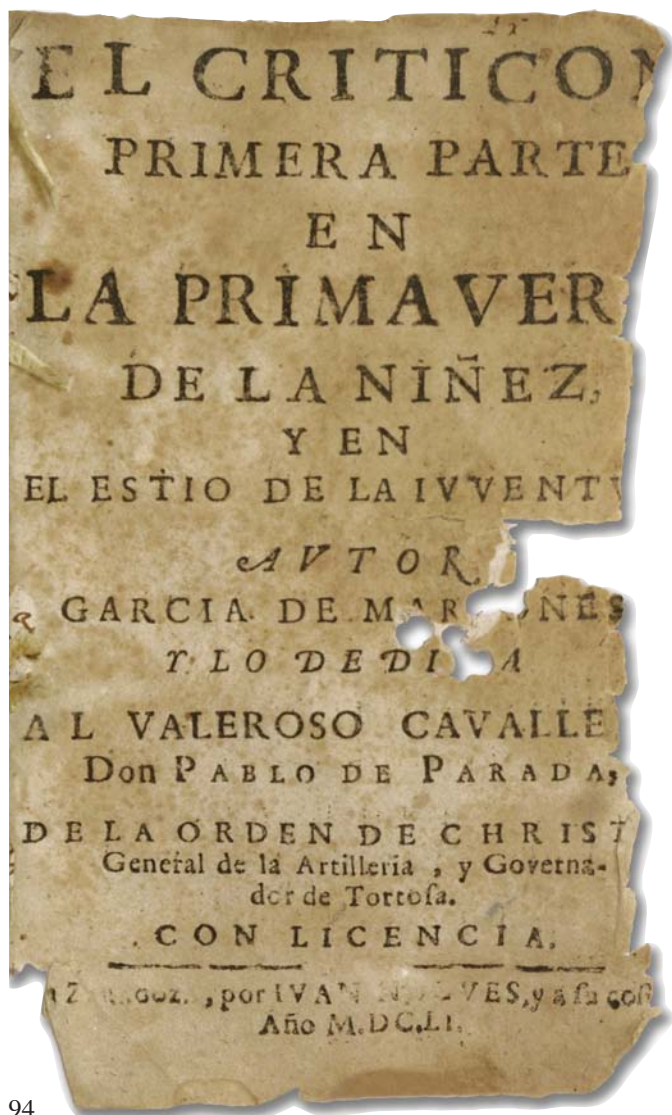 EL CRITICON
PRIMERA PARTE
EN
LA PRIMAVER
DE LA NIÑEZ,
Y EN
EL ESTIO DE LA IVVENTV
AVTOR
GARCIA DE MARLONES
Y LO DEDICA
AL VALEROSO CAVALLE
Don PABLO DE PARADA,
DE LA ORDEN DE CHRIST
General de la Artilleria, y Governa-
dor de Tortosa.
CON LICENCIA.
por IVAN NOGVES, y a su cost
Año M.DC.LI.
94